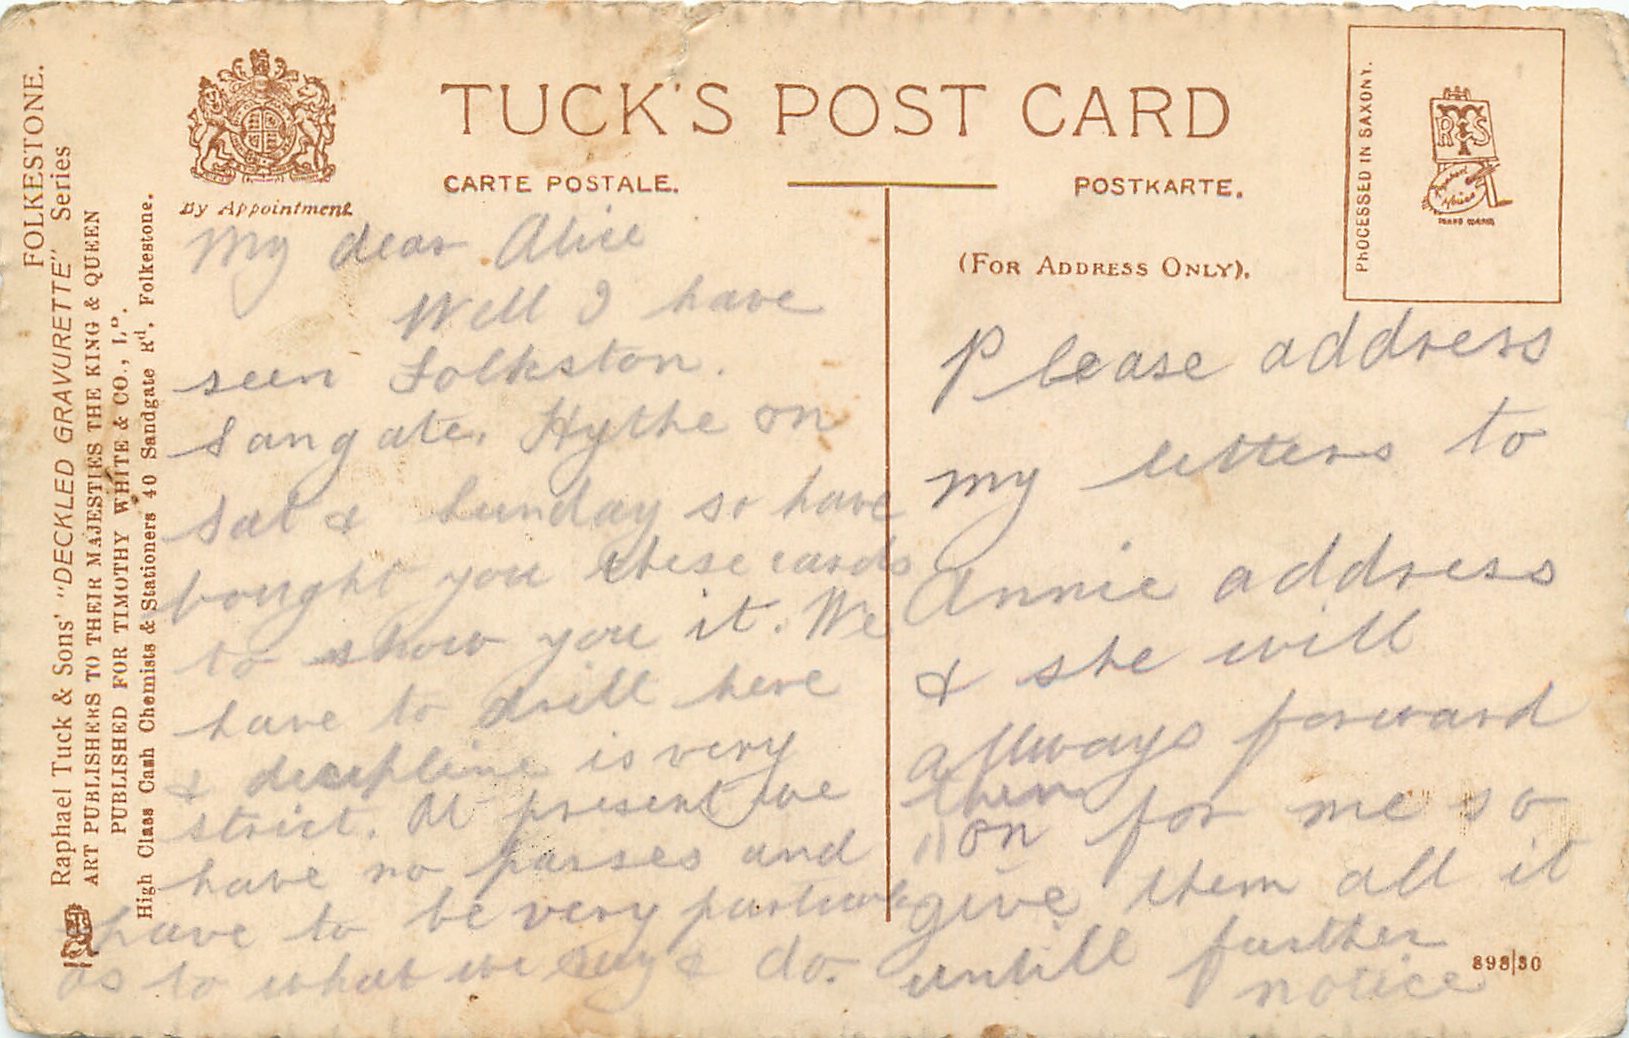 FOLKESTONE.
Raphael Tuck & Sons' "DECKLED GRAVURETTE" Series
ART PUBLISHERS TO THEIR MAJESTIES THE KING & QUEEN
PUBLISHED FOR TIMOTHY WHITE & CO., LD.
High Class Cash Chemists & Stationers 40 Sandgate Rd. Folkestone.
By Appointment
TUCK'S POST CARD
CARTE POSTALE.
POSTKARTE.
(FOR ADDRESS ONLY).
PROCESSED IN SAXONY.
My dear Alice
Well I have
seen Folkston.
Sangate. Hythe on
Sat & Sunday so have
bought you these cards
to show you it. We
have to drill here
& decipline is very
strict. At present we
have no passes and
have to be very particular
as to what we say & do.
Please address
my letters to
Annie address
& she will
allways forward
them
on for me so
give them all it
untill further
notice
898/30